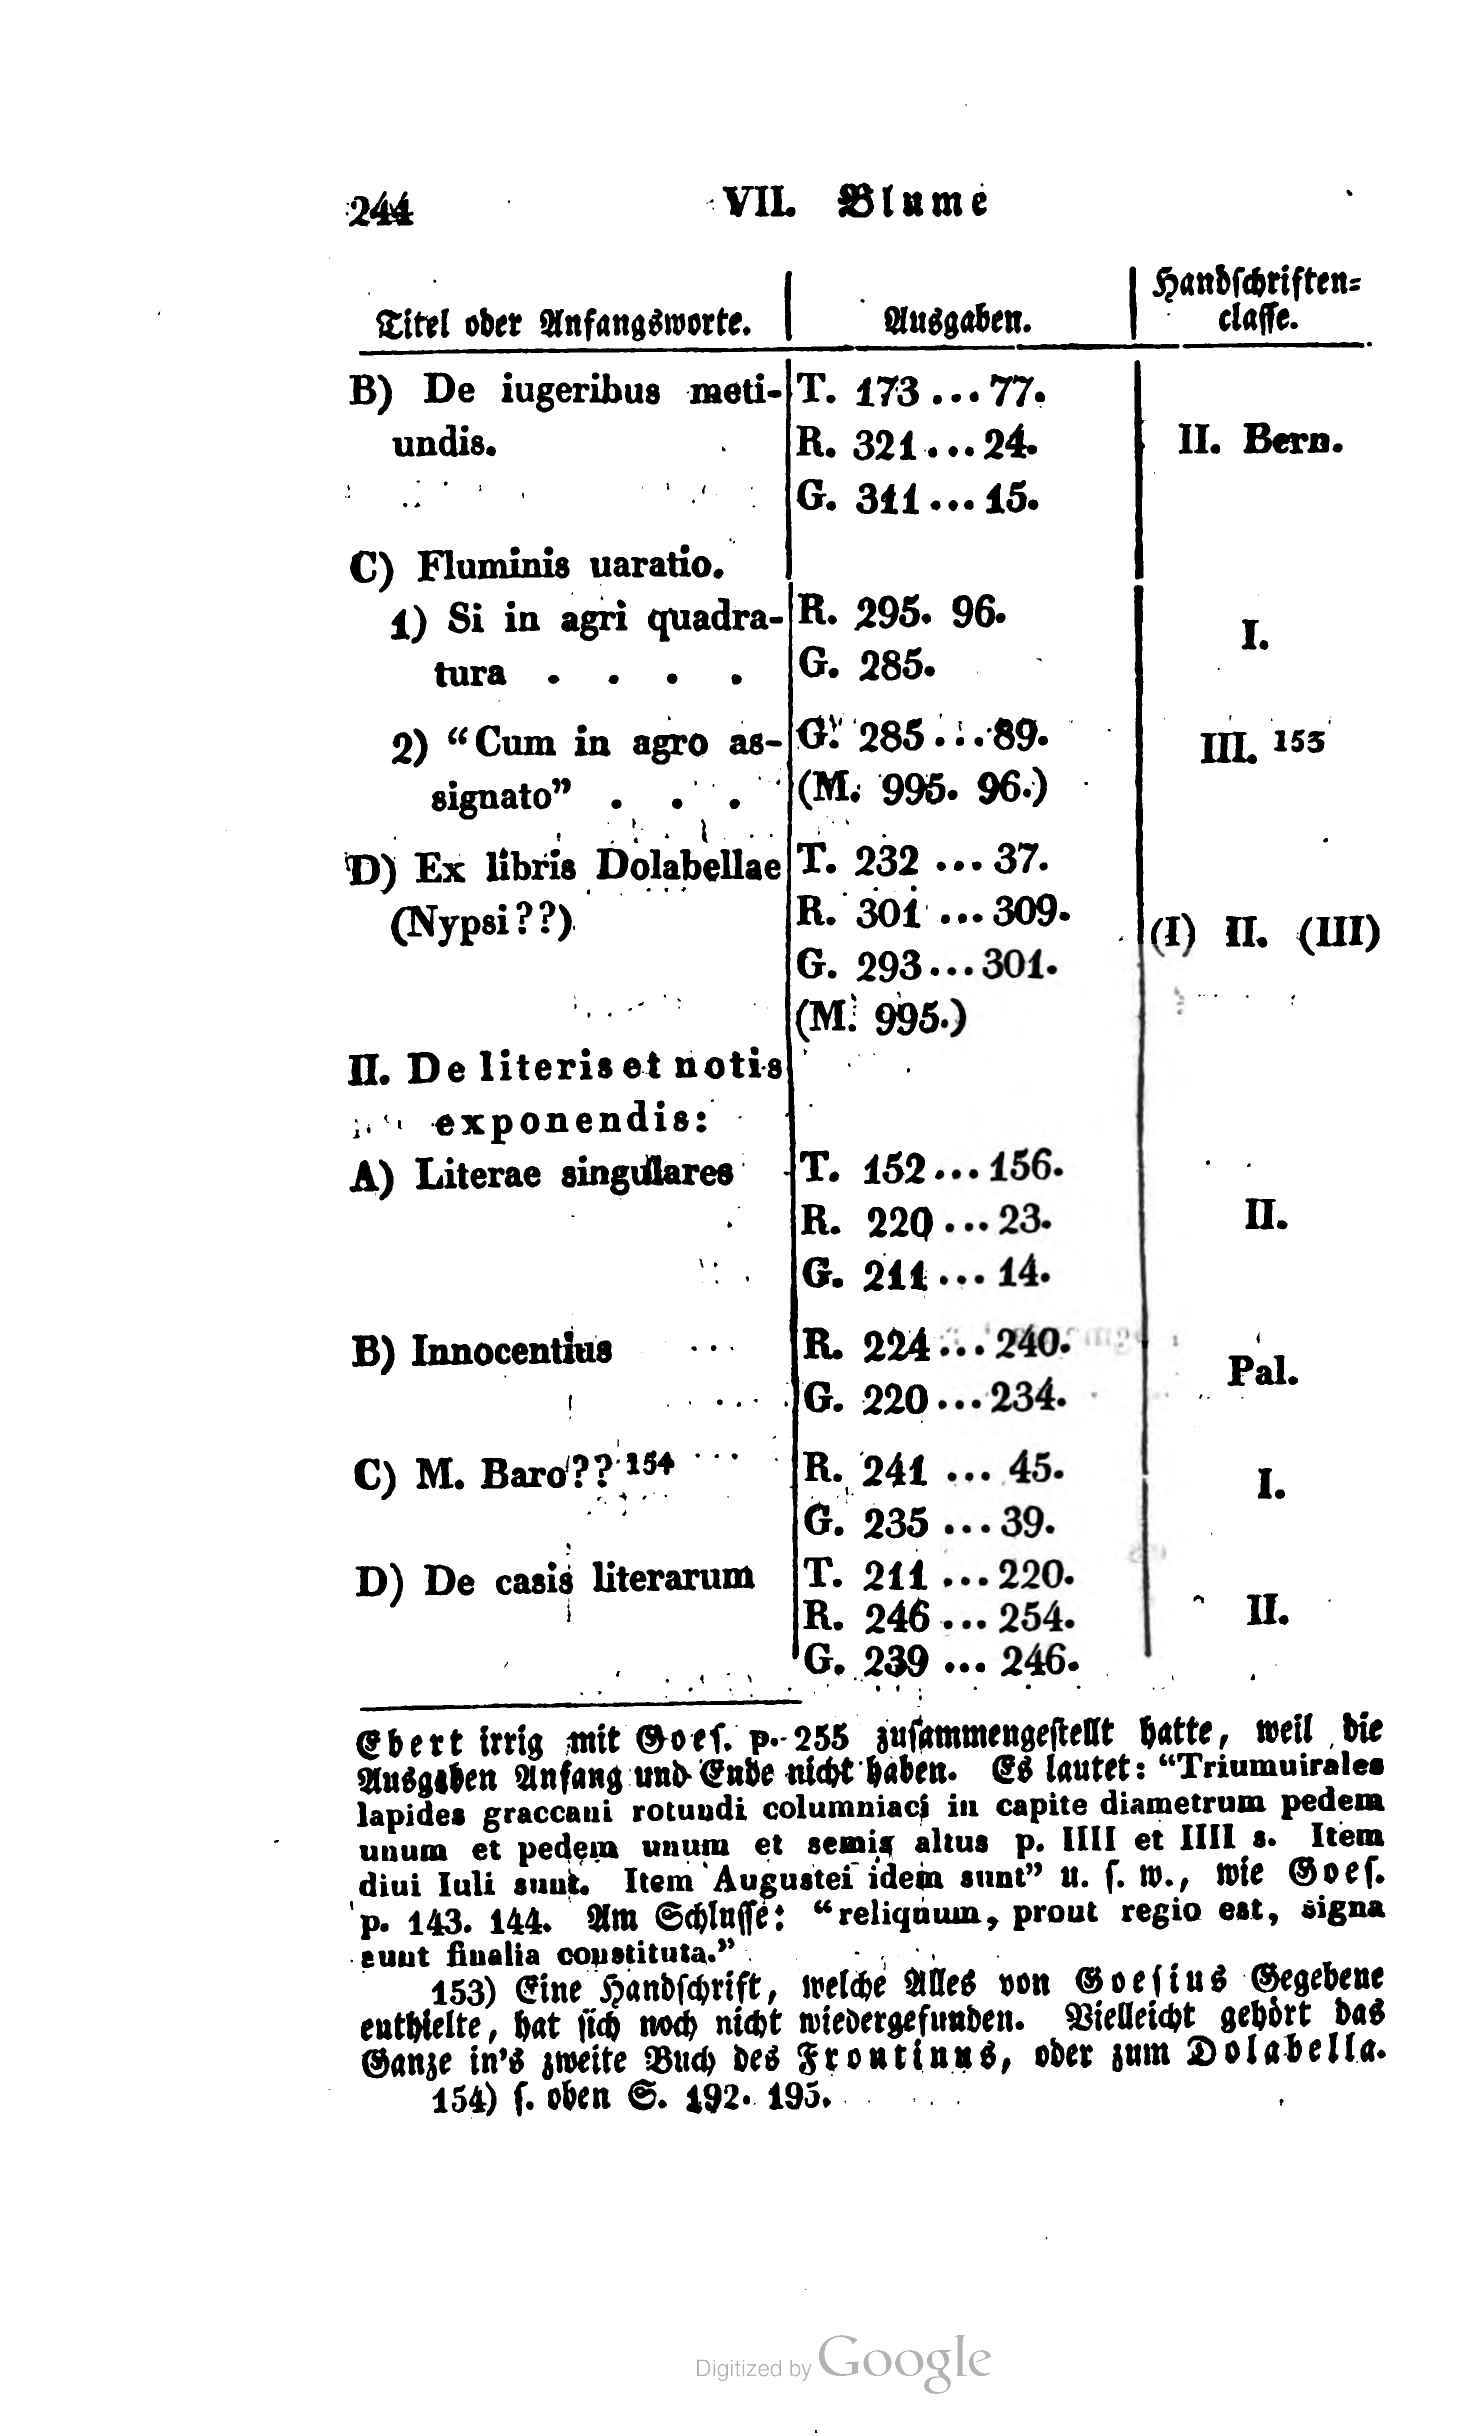 244 VII. Blume
Titel oder Anfangsworte. Ausgaben. Handschriften=
classe.
B) De iugeribus meti- T. 173...77.
undis. R. 321...24. II. Bern.
G. 311...15.
C) Fluminis uaratio.
1) Si in agri quadra- R. 295. 96. I.
tura . . . . G. 285.
2) “Cum in agro as- G. 285...89. III. 153
signato” . . . (M. 995. 96.)
D) Ex libris Dolabellae T. 232 ... 37.
(Nypsi??) R. 301 ... 309. (I) II. (III)
G. 293...301.
(M. 995.)
II. De literis et notis
exponendis:
A) Literae singulares T. 152...156.
R. 220...23. II.
G. 211...14.
B) Innocentius R. 224...240. Pal.
G. 220...234.
C) M. Baro?? 154 R. 241 ... 45. I.
G. 235 ... 39.
D) De casis literarum T. 211 ... 220.
R. 246 ... 254. II.
G. 239 ... 246.
Ebert irrig mit Goes. p. 255 zusammengestellt hatte, weil die
Ausgaben Anfang und Ende nicht haben. Es lautet: “Triumuirales
lapides graccani rotundi columniaci in capite diametrum pedem
unum et pedem unum et semis altus p. IIII et IIII s. Item
diui Iuli sunt. Item Augustei idem sunt” u. s. w., wie Goes.
p. 143. 144. Am Schlusse: “reliquum, prout regio est, signa
sunt finalia constituta.”
153) Eine Handschrift, welche Alles von Goesius Gegebene
enthielte, hat sich noch nicht wiedergefunden. Vielleicht gehört das
Ganze in's zweite Buch des Frontinus, oder zum Dolabella.
154) s. oben S. 192. 195.
Digitized by Google